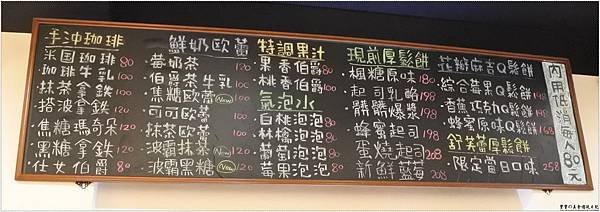 手沖珈琲
米国珈琲 80
珈琲牛乳 100
抹茶拿鉄 120
搭波拿鉄 120
焦糖瑪奇朵 120
黑糖拿鉄 120
仕女伯爵 80
鮮奶歐蕾
莓奶茶 100
伯爵茶牛乳 100
焦糖歐蕾 New
可可歐蕾 100
抹茶歐蕾 100
波霸抹茶 New
波霸黑糖 New 120
特調果汁
果香伯爵 80
桃香伯爵 100
氣泡水
白桃泡泡 80
林檎泡泡 80
葡萄泡泡 80
莓果泡泡 80
現煎厚鬆餅
楓糖原味 180
起司乳酪 198
髒髒爆漿 198
蜂蜜起司 198
蛋燒起司 208
新鮮藍莓 208
花瓣麻吉Q鬆餅
綜合莓果Q鬆餅 198
香蕉巧克Q鬆餅 198
蜂蜜原味Q鬆餅 168
舒芙蕾厚鬆餅
限定當日口味 258
內用低消每人80元